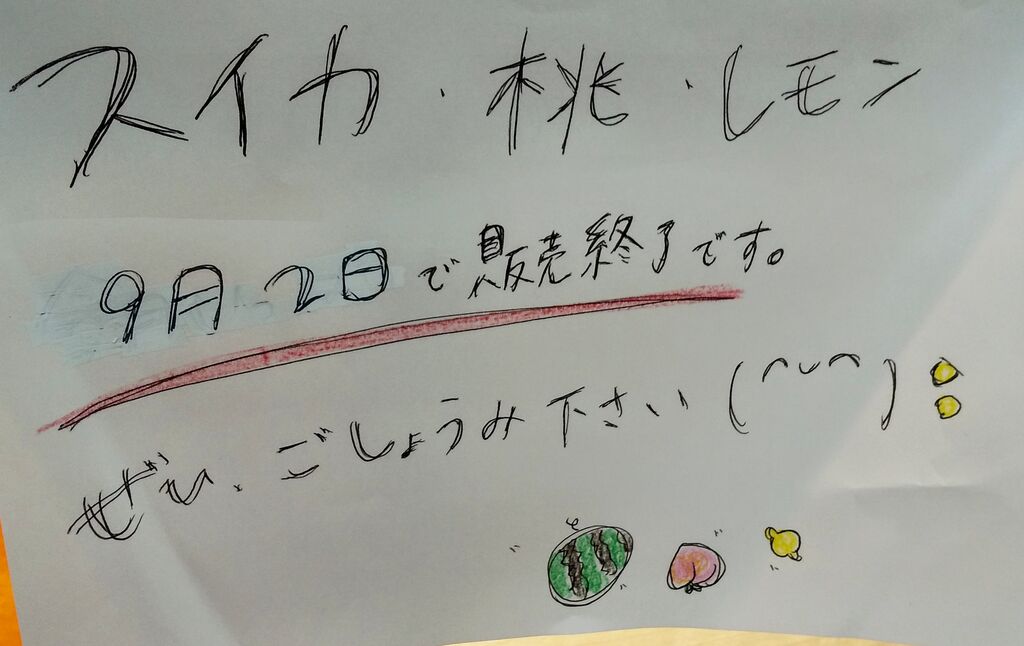 スイカ・桃・レモン
9月2日で販売終了です。
ぜひ、ごしょうみ下さい(^‿^)